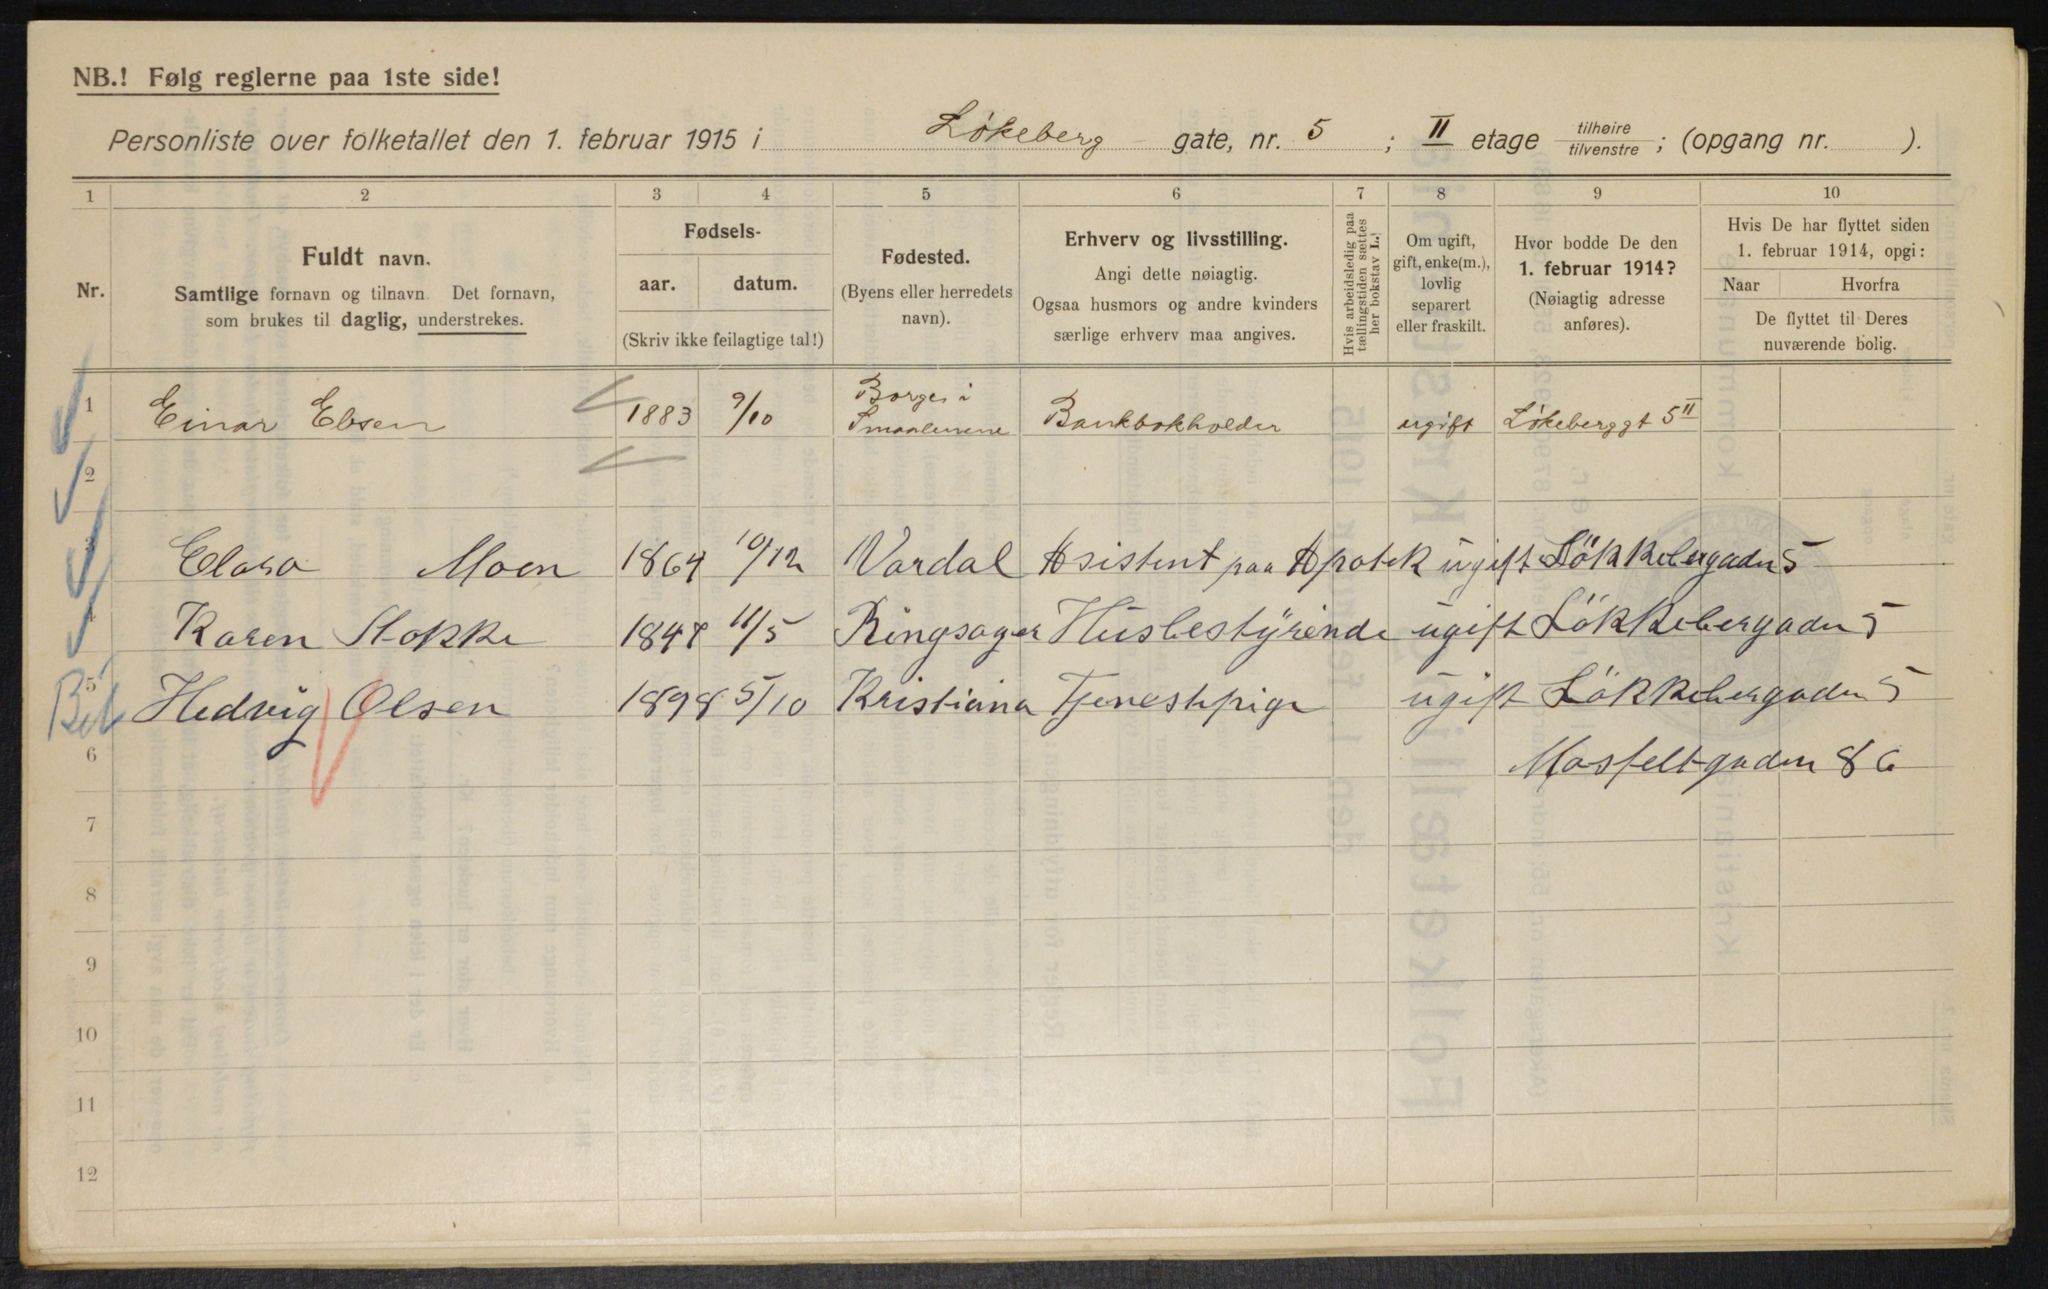 NB.! Følg reglerne paa 1ste side!
Personliste over folketallet den 1. februar 1915 i Løkeberg gate, nr. 5 ; II etage tilhøire tilvenstre ; (opgang nr. ).
1 2 3 4 5 6 7 8 9 10
Nr.
Fuldt navn.
Samtlige fornavn og tilnavn. Det fornavn,
som brukes til daglig, understrekes.
Fødsels-
aar. datum.
(Skriv ikke feilagtige tal!)
Fødested.
(Byens eller herredets
navn).
Erhverv og livsstilling.
Angi dette nøiagtig.
Ogsaa husmors og andre kvinders
særlige erhverv maa angives.
Hvis arbeidsledig paa
tællingstiden sættes
her bokstav L.
Om ugift,
gift, enke(m.),
lovlig
separert
eller fraskilt.
Hvor bodde De den
1. februar 1914?
(Nøiagtig adresse
anføres).
Hvis De har flyttet siden
1. februar 1914, opgi:
Naar Hvorfra
De flyttet til Deres
nuværende bolig.
1 Einar Ebsen 1883 9/10 Borge i Smaalenene Bankbokholder ugift Løkeberggt 5 II
2
3 Clara Moen 1864 10/12 Vardal Asistent paa Apotek ugift Lökkebergaden 5
4 Karen Stokke 1847 11/5 Ringsager Husbestyrende ugift Lökkebergaden 5
5 Hedvig Olsen 1898 5/10 Kristiania Tjenestpige ugift Lökkebergaden 5
6 Masfeltgaden 8
7
8
9
10
11
12